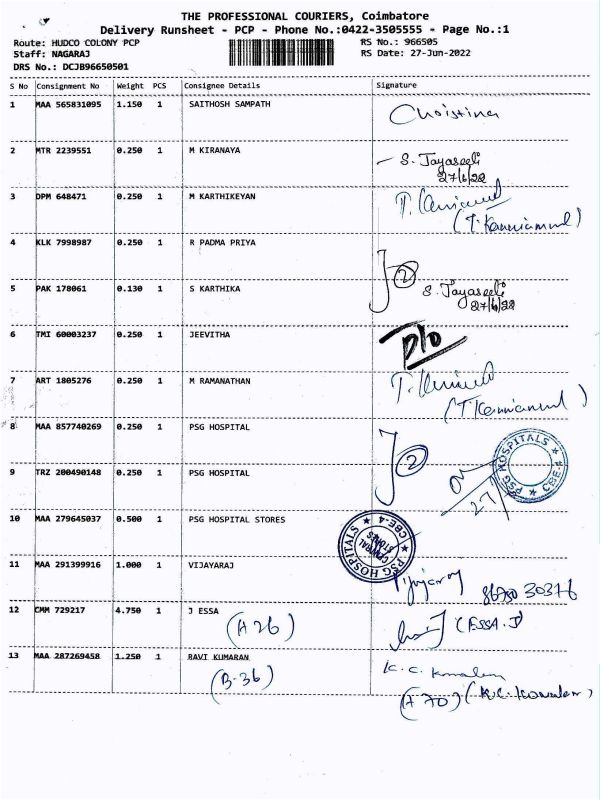 THE PROFESSIONAL COURIERS, Coimbatore
Delivery Runsheet - PCP - Phone No.:0422-3505555 - Page No.:1
Route: HUDCO COLONY PCP
RS No.: 966505
Staff: NAGARAJ
RS Date: 27-Jun-2022
DRS No.: DCJB96650501
S No Consignment No Weight PCS Consignee Details Signature
1 MAA 565831095 1.150 1 SAITHOSH SAMPATH
Christina
2 MTR 2239551 0.250 1 M KIRANAYA
S. Jayaseeli
27/6/22
3 DPM 648471 0.250 1 M KARTHIKEYAN
(T. Kanniammal)
4 KLK 7998987 0.250 1 R PADMA PRIYA
2
5 PAK 178061 0.130 1 S KARTHIKA
S. Jayaseeli
27/6/22
6 TMI 60003237 0.250 1 JEEVITHA
D/O
7 ART 1805276 0.250 1 M RAMANATHAN
(T Kanniammal)
8 MAA 857740269 0.250 1 PSG HOSPITAL
2
PSG HOSPITALS CBE-4
9 TRZ 200490148 0.250 1 PSG HOSPITAL
27/
10 MAA 279645037 0.500 1 PSG HOSPITAL STORES
PSG HOSPITALS CBE-4
CENTRAL STORES
11 MAA 291399916 1.000 1 VIJAYARAJ
Vijayaraj
12 CMM 729217 4.750 1 J ESSA
(A 26)
(ESSA.J)
13 MAA 287269458 1.250 1 RAVI KUMARAN
(B-36)
K.C. Kamalam
(A 70) (K.C. Kamalam)